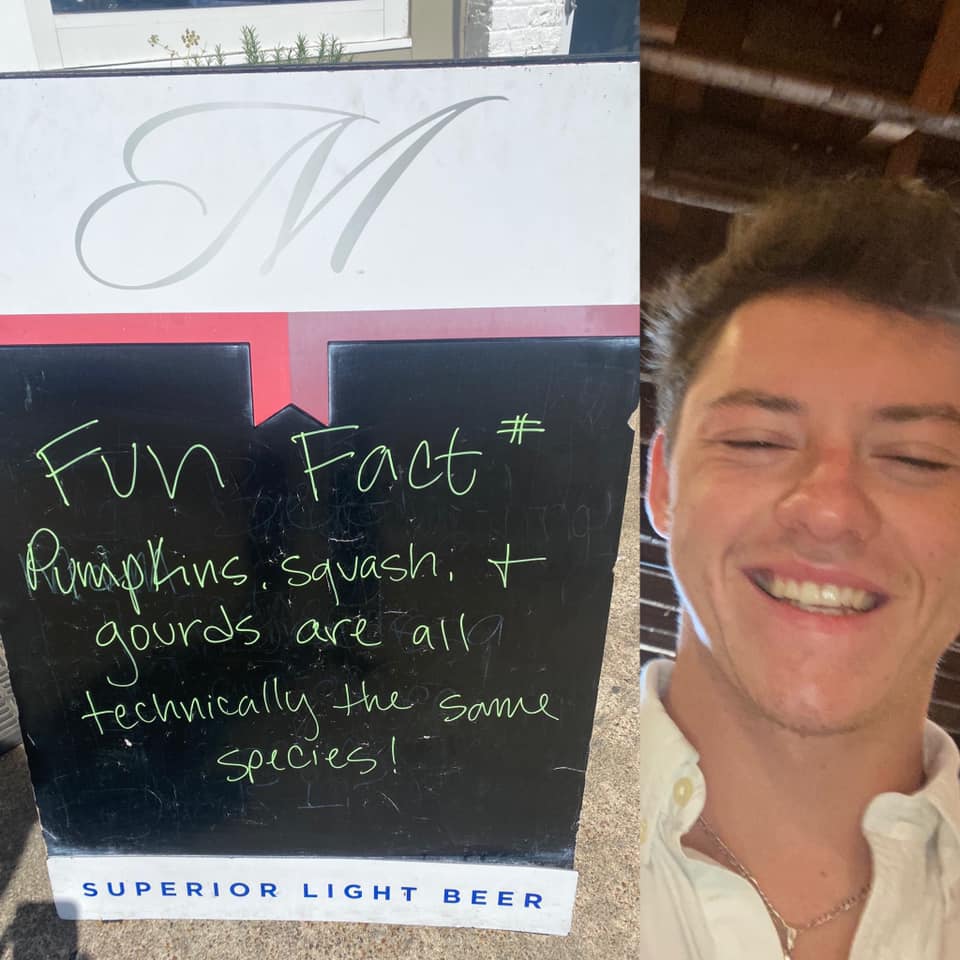 M
Fun Fact #
Pumpkins, squash, +
gourds are all
technically the same
species!
SUPERIOR LIGHT BEER